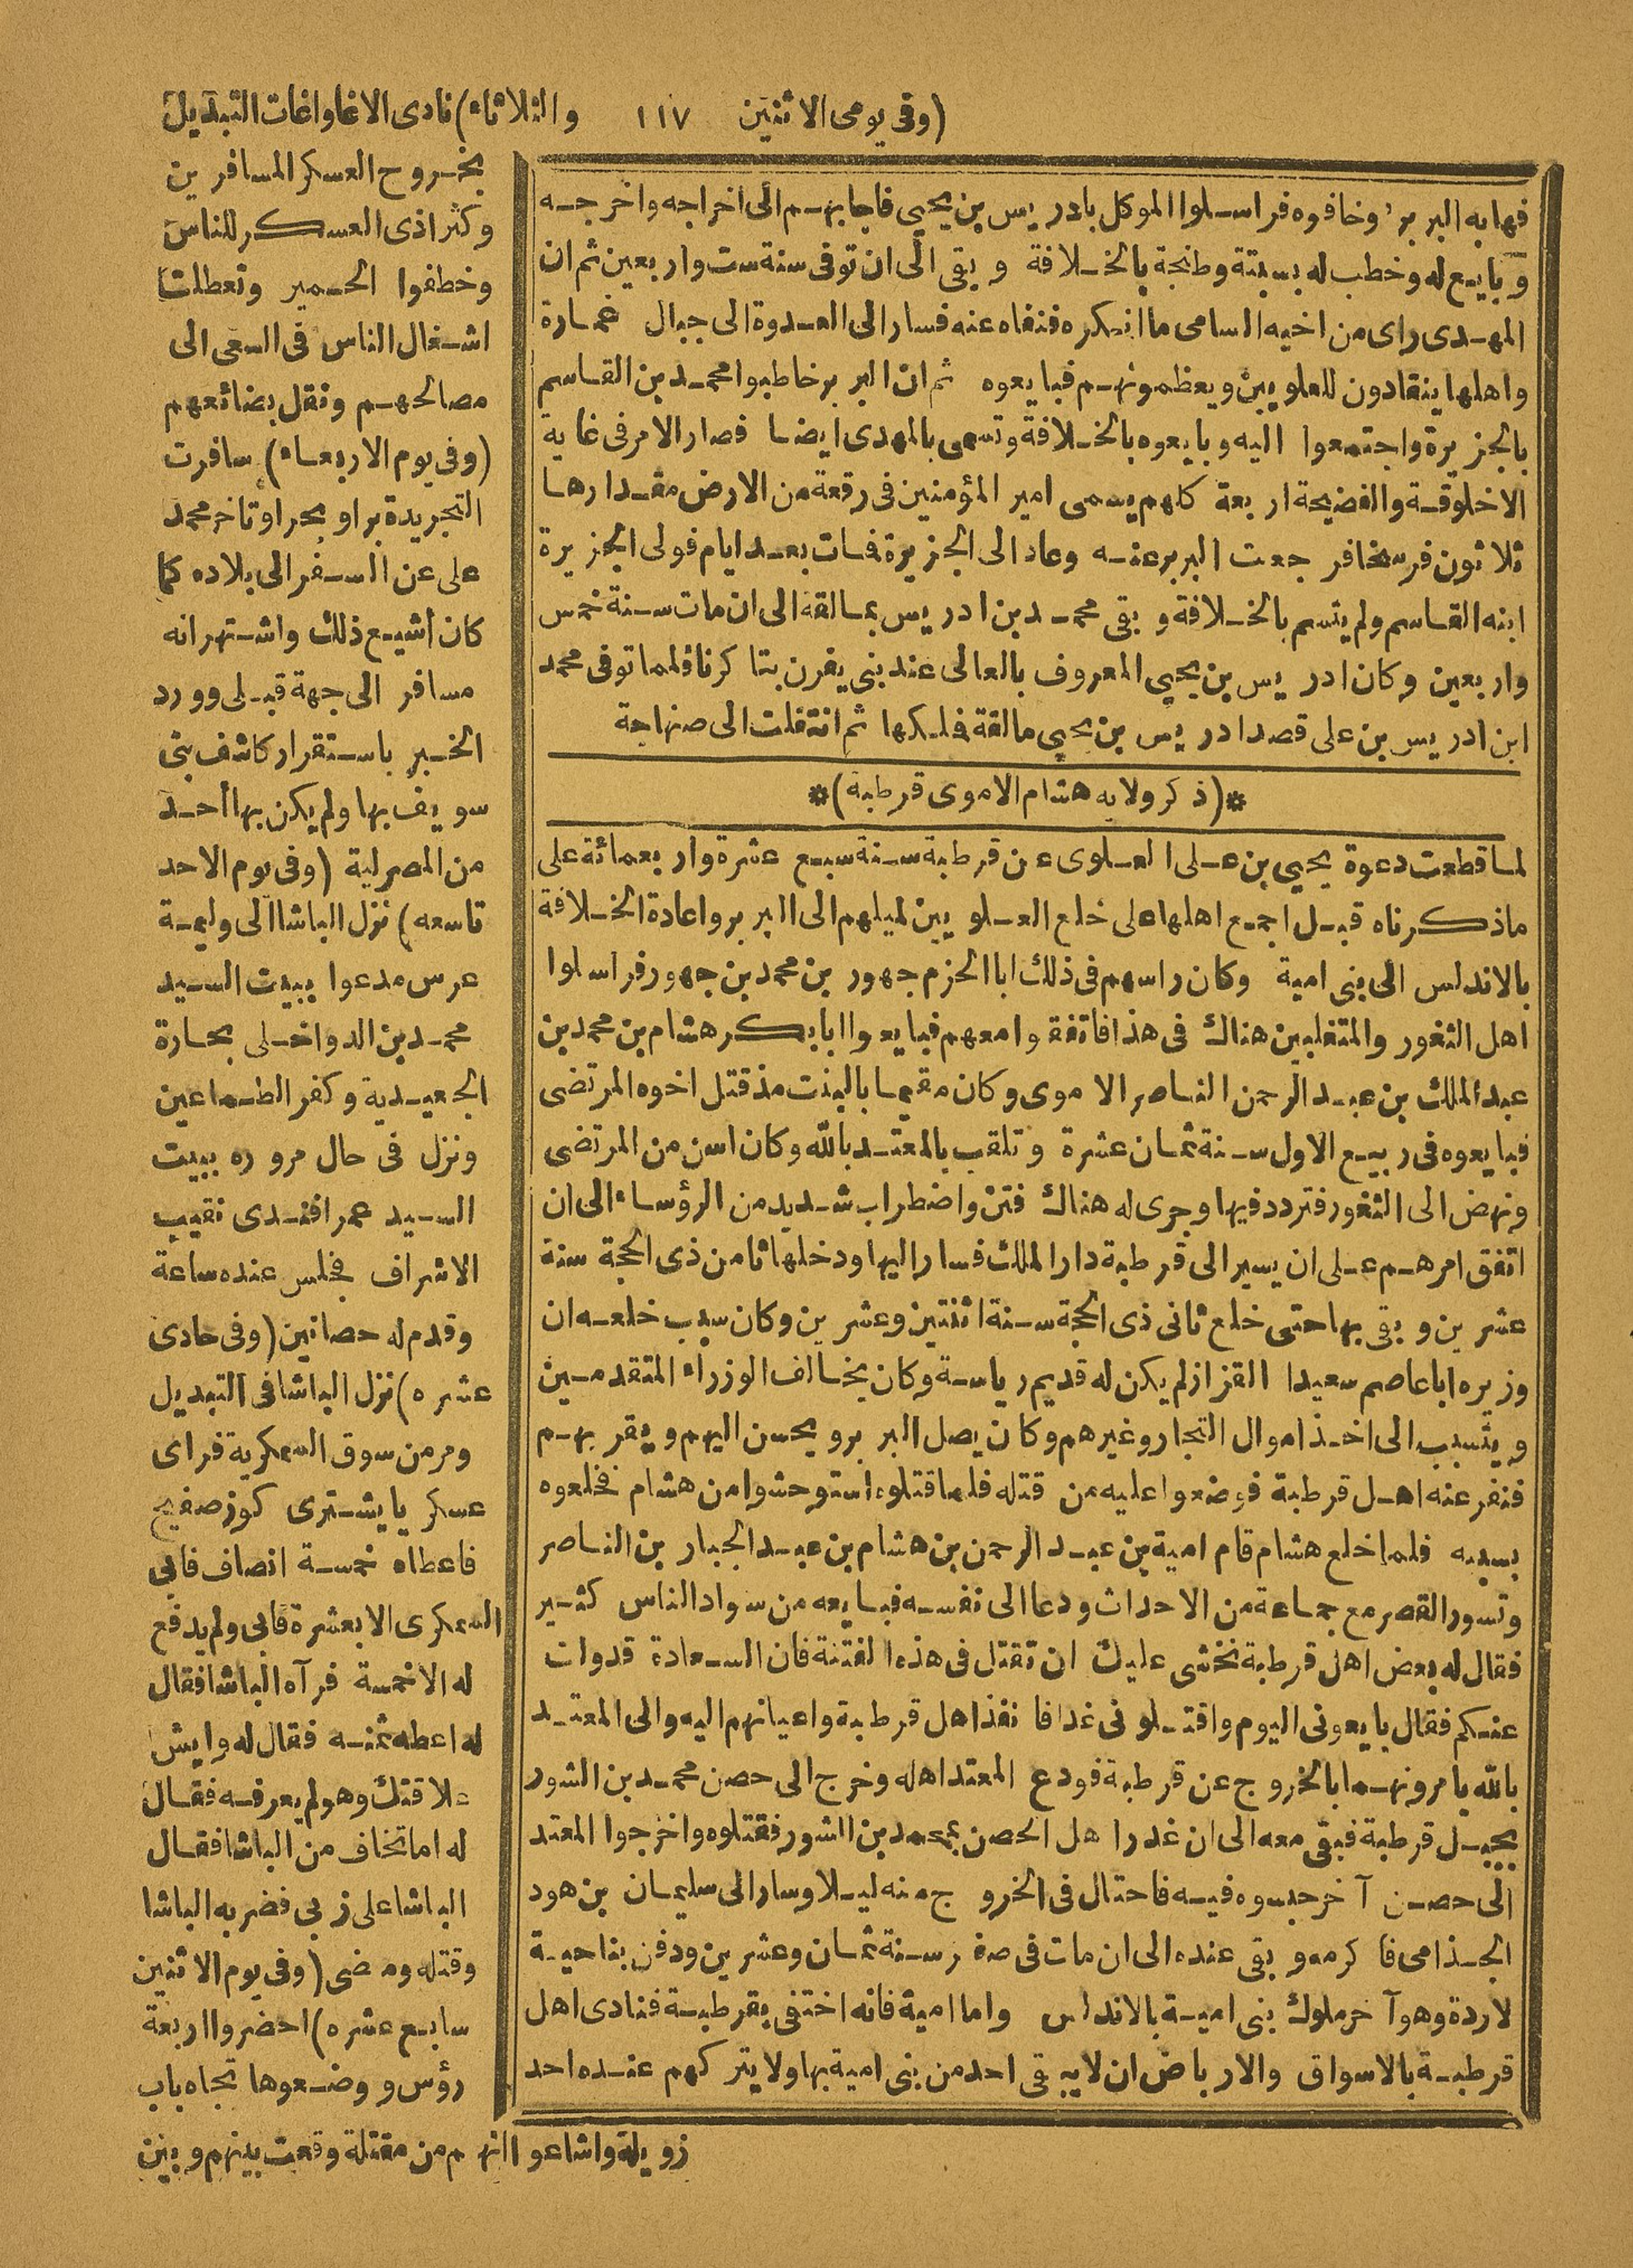 (وفى يومى الاثنين ١١٧ والثلاثاء) نادى الاغا واغات التبديل
فهابه البربر وخافوه فراسلوا الموكل بادريس بن يحيى فاجابهم الى اخراجه واخرجه
وبايع له وخطب له بسبتة وطنجة بالخلافة وبقى الى ان توفى سنة ست واربعين ثم ان
المهدى راى من اخيه السامى ما انكره فنفاه عنه فسار الى العدوة الى جبال غمارة
واهلها ينقادون للعلويين ويعظمونهم فبايعوه ثم ان البربر خاطبوا محمد بن القاسم
بالجزيرة واجتمعوا اليه وبايعوه بالخلافة وتسمى بالمهدى ايضا فصار الامر فى غاية
الاخلوقة والفضيحة اربعة كلهم يسمى امير المؤمنين فى رقعة من الارض مقدارها
ثلاثون فرسخا فرجعت البربر عنه وعاد الى الجزيرة فمات بعد ايام فولى الجزيرة
ابنه القاسم ولم يتسم بالخلافة وبقى محمد بن ادريس بمالقة الى ان مات سنة خمس
واربعين وكان ادريس بن يحيى المعروف بالعالى عند بنى يفرن بتاكرنا فلما توفى محمد
ابن ادريس بن على قصد ادريس بن يحيى مالقة فملكها ثم انتقلت الى صنهاجة
*(ذكر ولاية هشام الاموى قرطبة)*
لما قطعت دعوة يحيى بن على العلوى عن قرطبة سنة سبع عشرة واربعمائة على
ماذكرناه قبل اجمع اهلها على خلع العلويين لميلهم الى البربر واعادة الخلافة
بالاندلس الى بنى امية وكان راسهم فى ذلك ابا الحزم جهور بن محمد بن جهور فراسلوا
اهل الثغور والمتغلبين هناك فى هذا فاتفقوا معهم فبايعوا ابا بكر هشام بن محمد بن
عبد الملك بن عبد الرحمن الناصر الاموى وكان مقيما بالبنت مذ قتل اخوه المرتضى
فبايعوه فى ربيع الاول سنة ثمان عشرة وتلقب بالمعتد بالله وكان اسن من المرتضى
ونهض الى الثغور فتردد فيها وجرى له هناك فتن واضطراب شديد من الرؤساء الى ان
اتفق امرهم على ان يسير الى قرطبة دار الملك فسار اليها ودخلها ثامن ذى الحجة سنة
عشرين وبقى بها حتى خلع ثانى ذى الحجة سنة اثنتين وعشرين وكان سبب خلعه ان
وزيره ابا عاصم سعيدا القزاز لم يكن له قديم رياسة وكان يخالف الوزراء المتقدمين
ويتسبب الى اخذ اموال التجار وغيرهم وكان يصل البربر ويحسن اليهم ويقربهم
فنفر عنه اهل قرطبة فوضعوا عليه من قتله فلما قتلوه استوحشوا من هشام فخلعوه
بسببه فلما خلع هشام قام امية بن عبد الرحمن بن هشام بن عبد الجبار بن الناصر
وتسور القصر مع جماعة من الاحداث ودعا الى نفسه فبايعه من سواد الناس كثير
فقال له بعض اهل قرطبة نخشى عليك ان تقتل فى هذه الفتنة فان السعادة قد ولت
عنكم فقال بايعونى اليوم واقتلونى غدا فانفذ اهل قرطبة واعيانهم اليه والى المعتد
بالله يامرونهما بالخروج عن قرطبة فودع المعتد اهله وخرج الى حصن محمد بن الشور
بجبل قرطبة فبقى معه الى ان غدر اهل الحصن بمحمد بن الشور فقتلوه واخرجوا المعتد
الى حصن آخر حبسوه فيه فاحتال فى الخروج منه ليلا وسار الى سليمان بن هود
الجذامى فاكرمه وبقى عنده الى ان مات فى صفر سنة ثمان وعشرين ودفن بناحية
لاردة وهو آخر ملوك بنى امية بالاندلس واما امية فانه اختفى بقرطبة فنادى اهل
قرطبة بالاسواق والارباض ان لا يبقى احد من بنى امية بها ولا يتركهم عنده احد
بخروج العسكر المسافرين
وكثر اذى العسكر للناس
وخطفوا الحمير وتعطلت
اشغال الناس فى السعى الى
مصالحهم ونقل بضائعهم
(وفى يوم الاربعاء) سافرت
التجريدة برا وبحرا وتاخر محمد
على عن السفر الى بلاده كما
كان أشيع ذلك واشتهر انه
مسافر الى جهة قبلى وورد
الخبر باستقرار كاشف بنى
سويف بها ولم يكن بها أحد
من المصرلية (وفى يوم الاحد
تاسعه) نزل الباشا الى وليمة
عرس مدعوا ببيت السيد
محمد بن الدواخلى بحارة
الجعيدية وكفر الطماعين
ونزل فى حال مروره ببيت
السيد عمر افندى نقيب
الاشراف فجلس عنده ساعة
وقدم له حصانين (وفى حادى
عشره) نزل الباشا فى التبديل
ومر من سوق السكرية فراى
عسكريا يشترى كوز صفيح
فاعطاه خمسة انصاف فابى
السكرى الا بعشرة فابى ولم يدفع
له الا خمسة فرآه الباشا فقال
له اعطه ثمنه فقال له وايش
علاقتك وهو لم يعرفه فقال
له اما تخاف من الباشا فقال
الباشا على زبى فضربه الباشا
وقتله ومضى (وفى يوم الاثنين
سابع عشره) احضروا اربعة
رؤس ووضعوها تجاه باب
زويلة واشاعوا انهم من مقتلة وقعت بينهم وبين